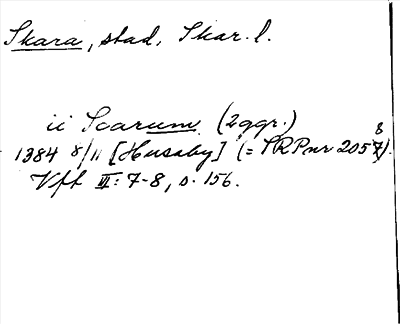 Skara, stad, Skar. l.
ii Scarum (2 ggr.)
1384 8/11 [Husaby] (= SRPnr 2058).
VfT III: 7-8, s. 156.